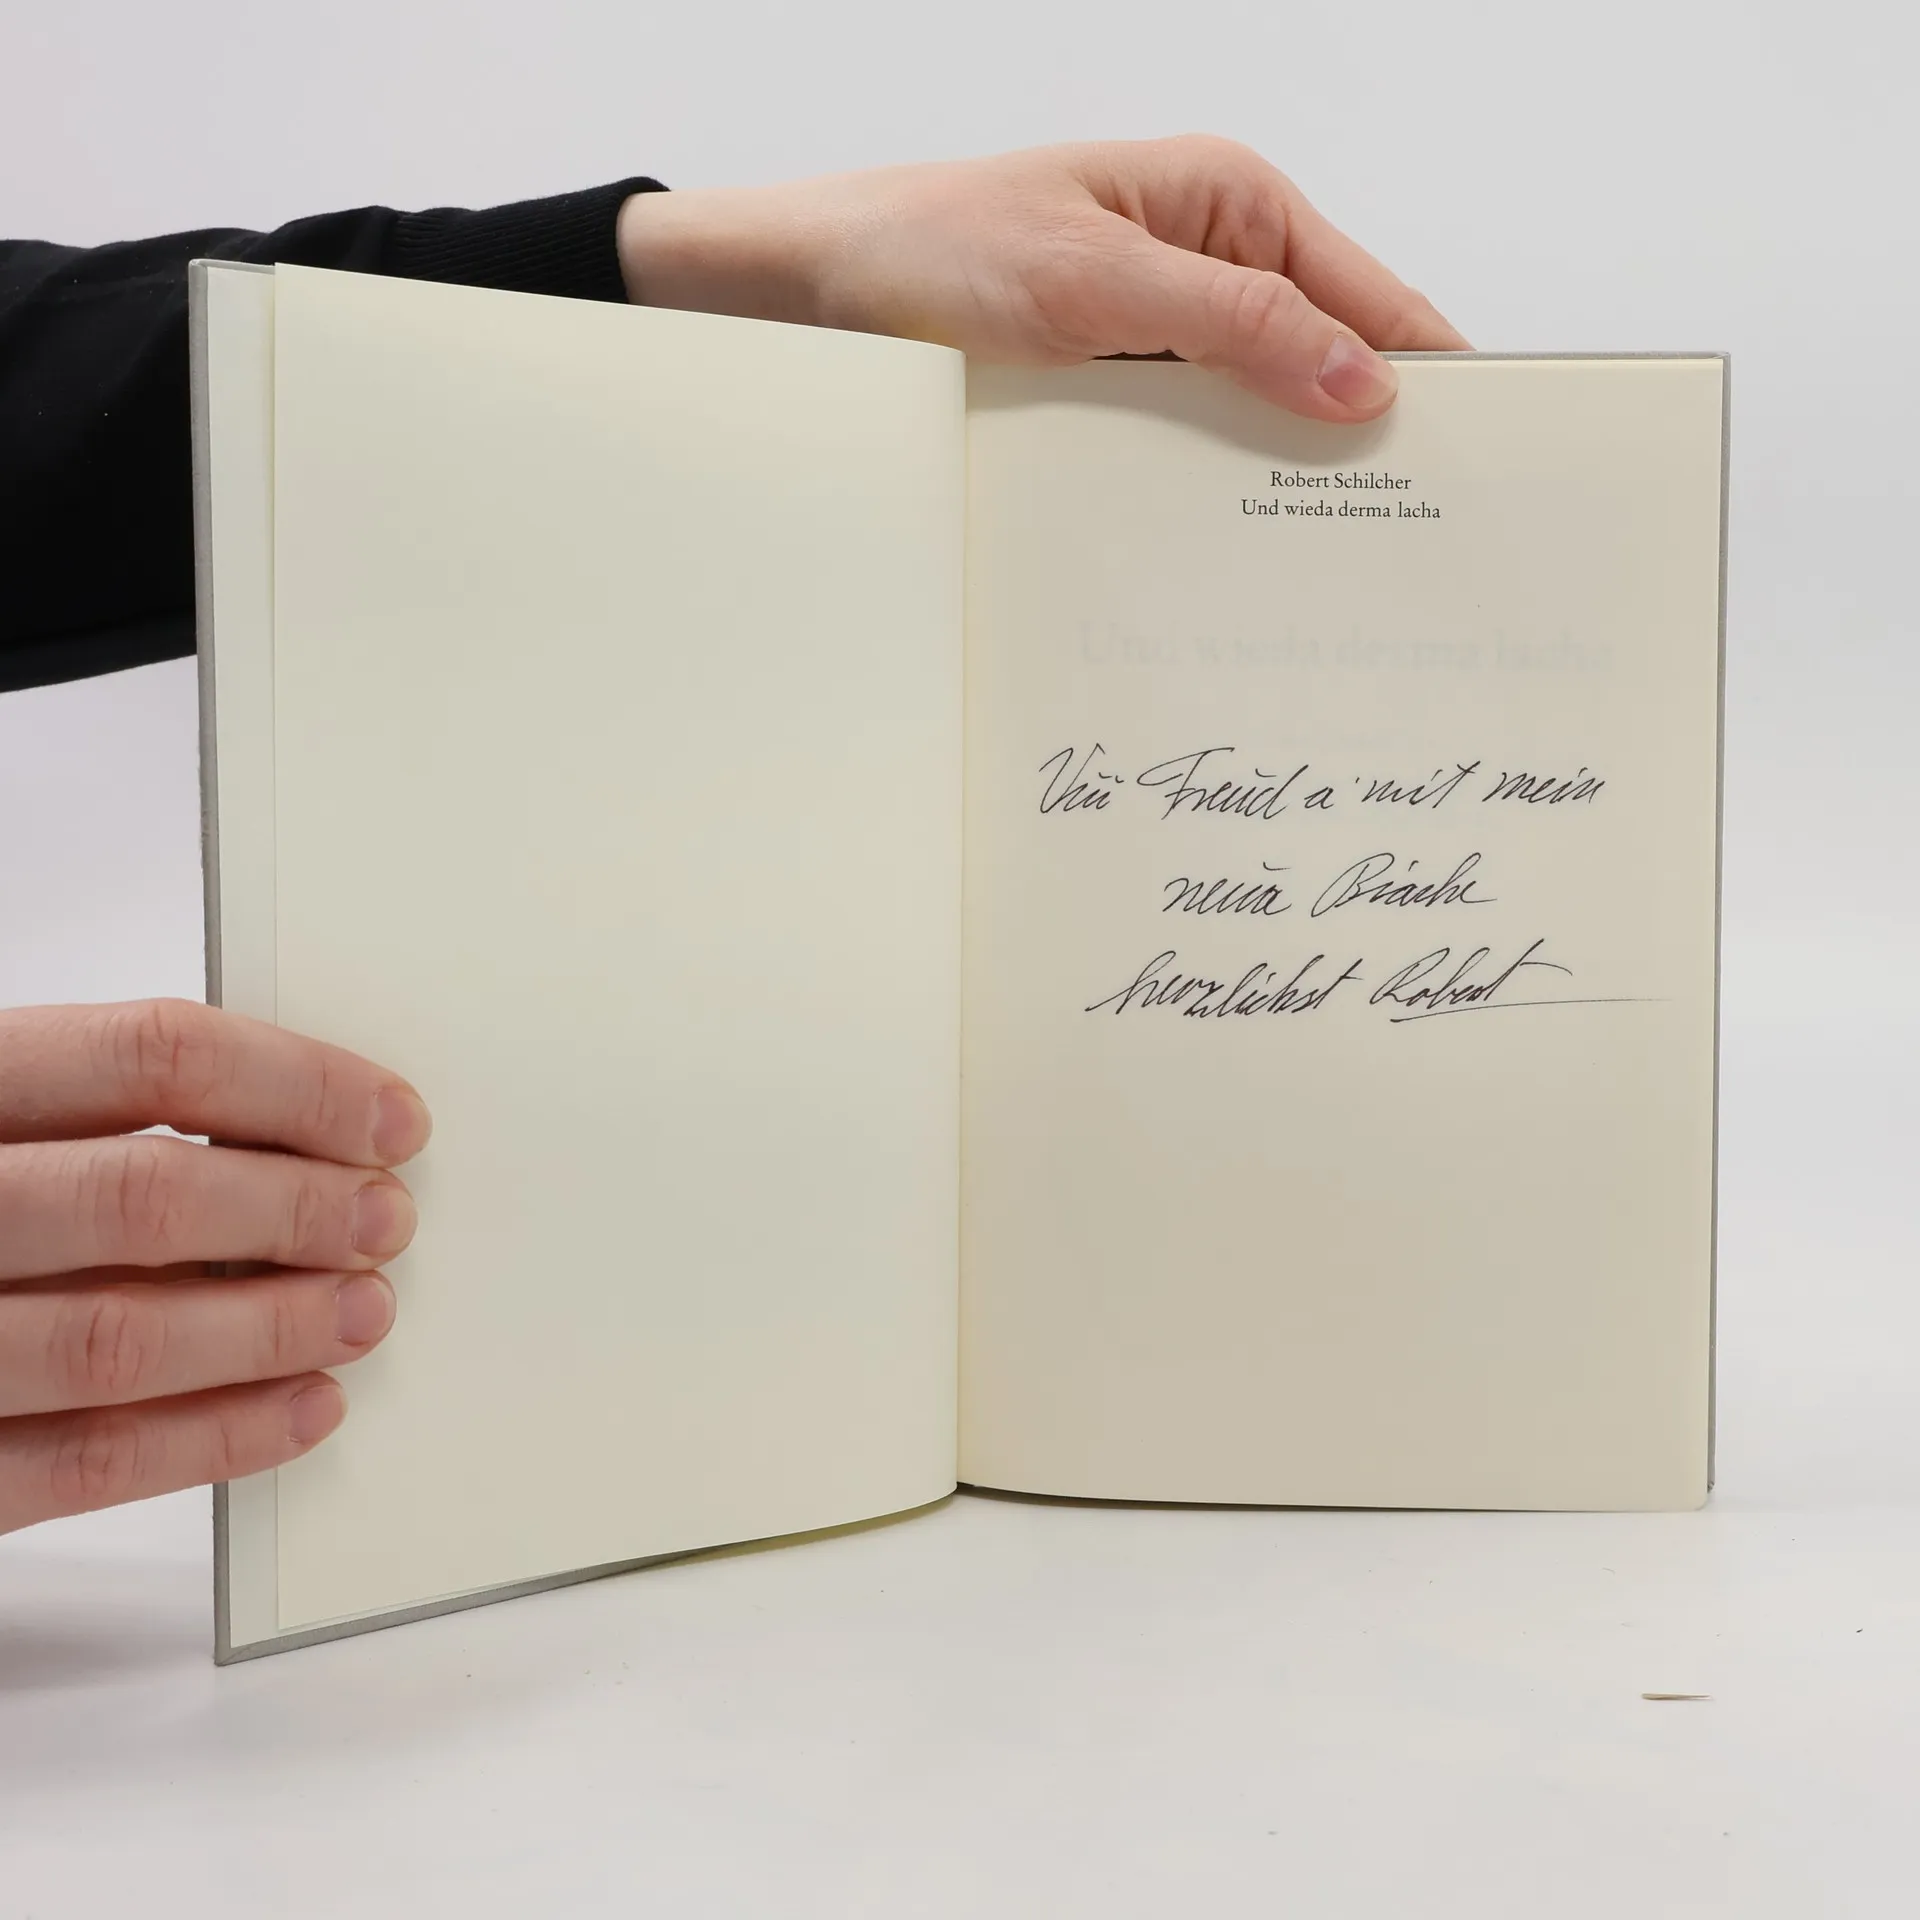 Robert Schilcher
Und wieda derma lacha
Und wieda derma lacha
Vüü Freud a mit mein
neua Biache
herzlichst Robert